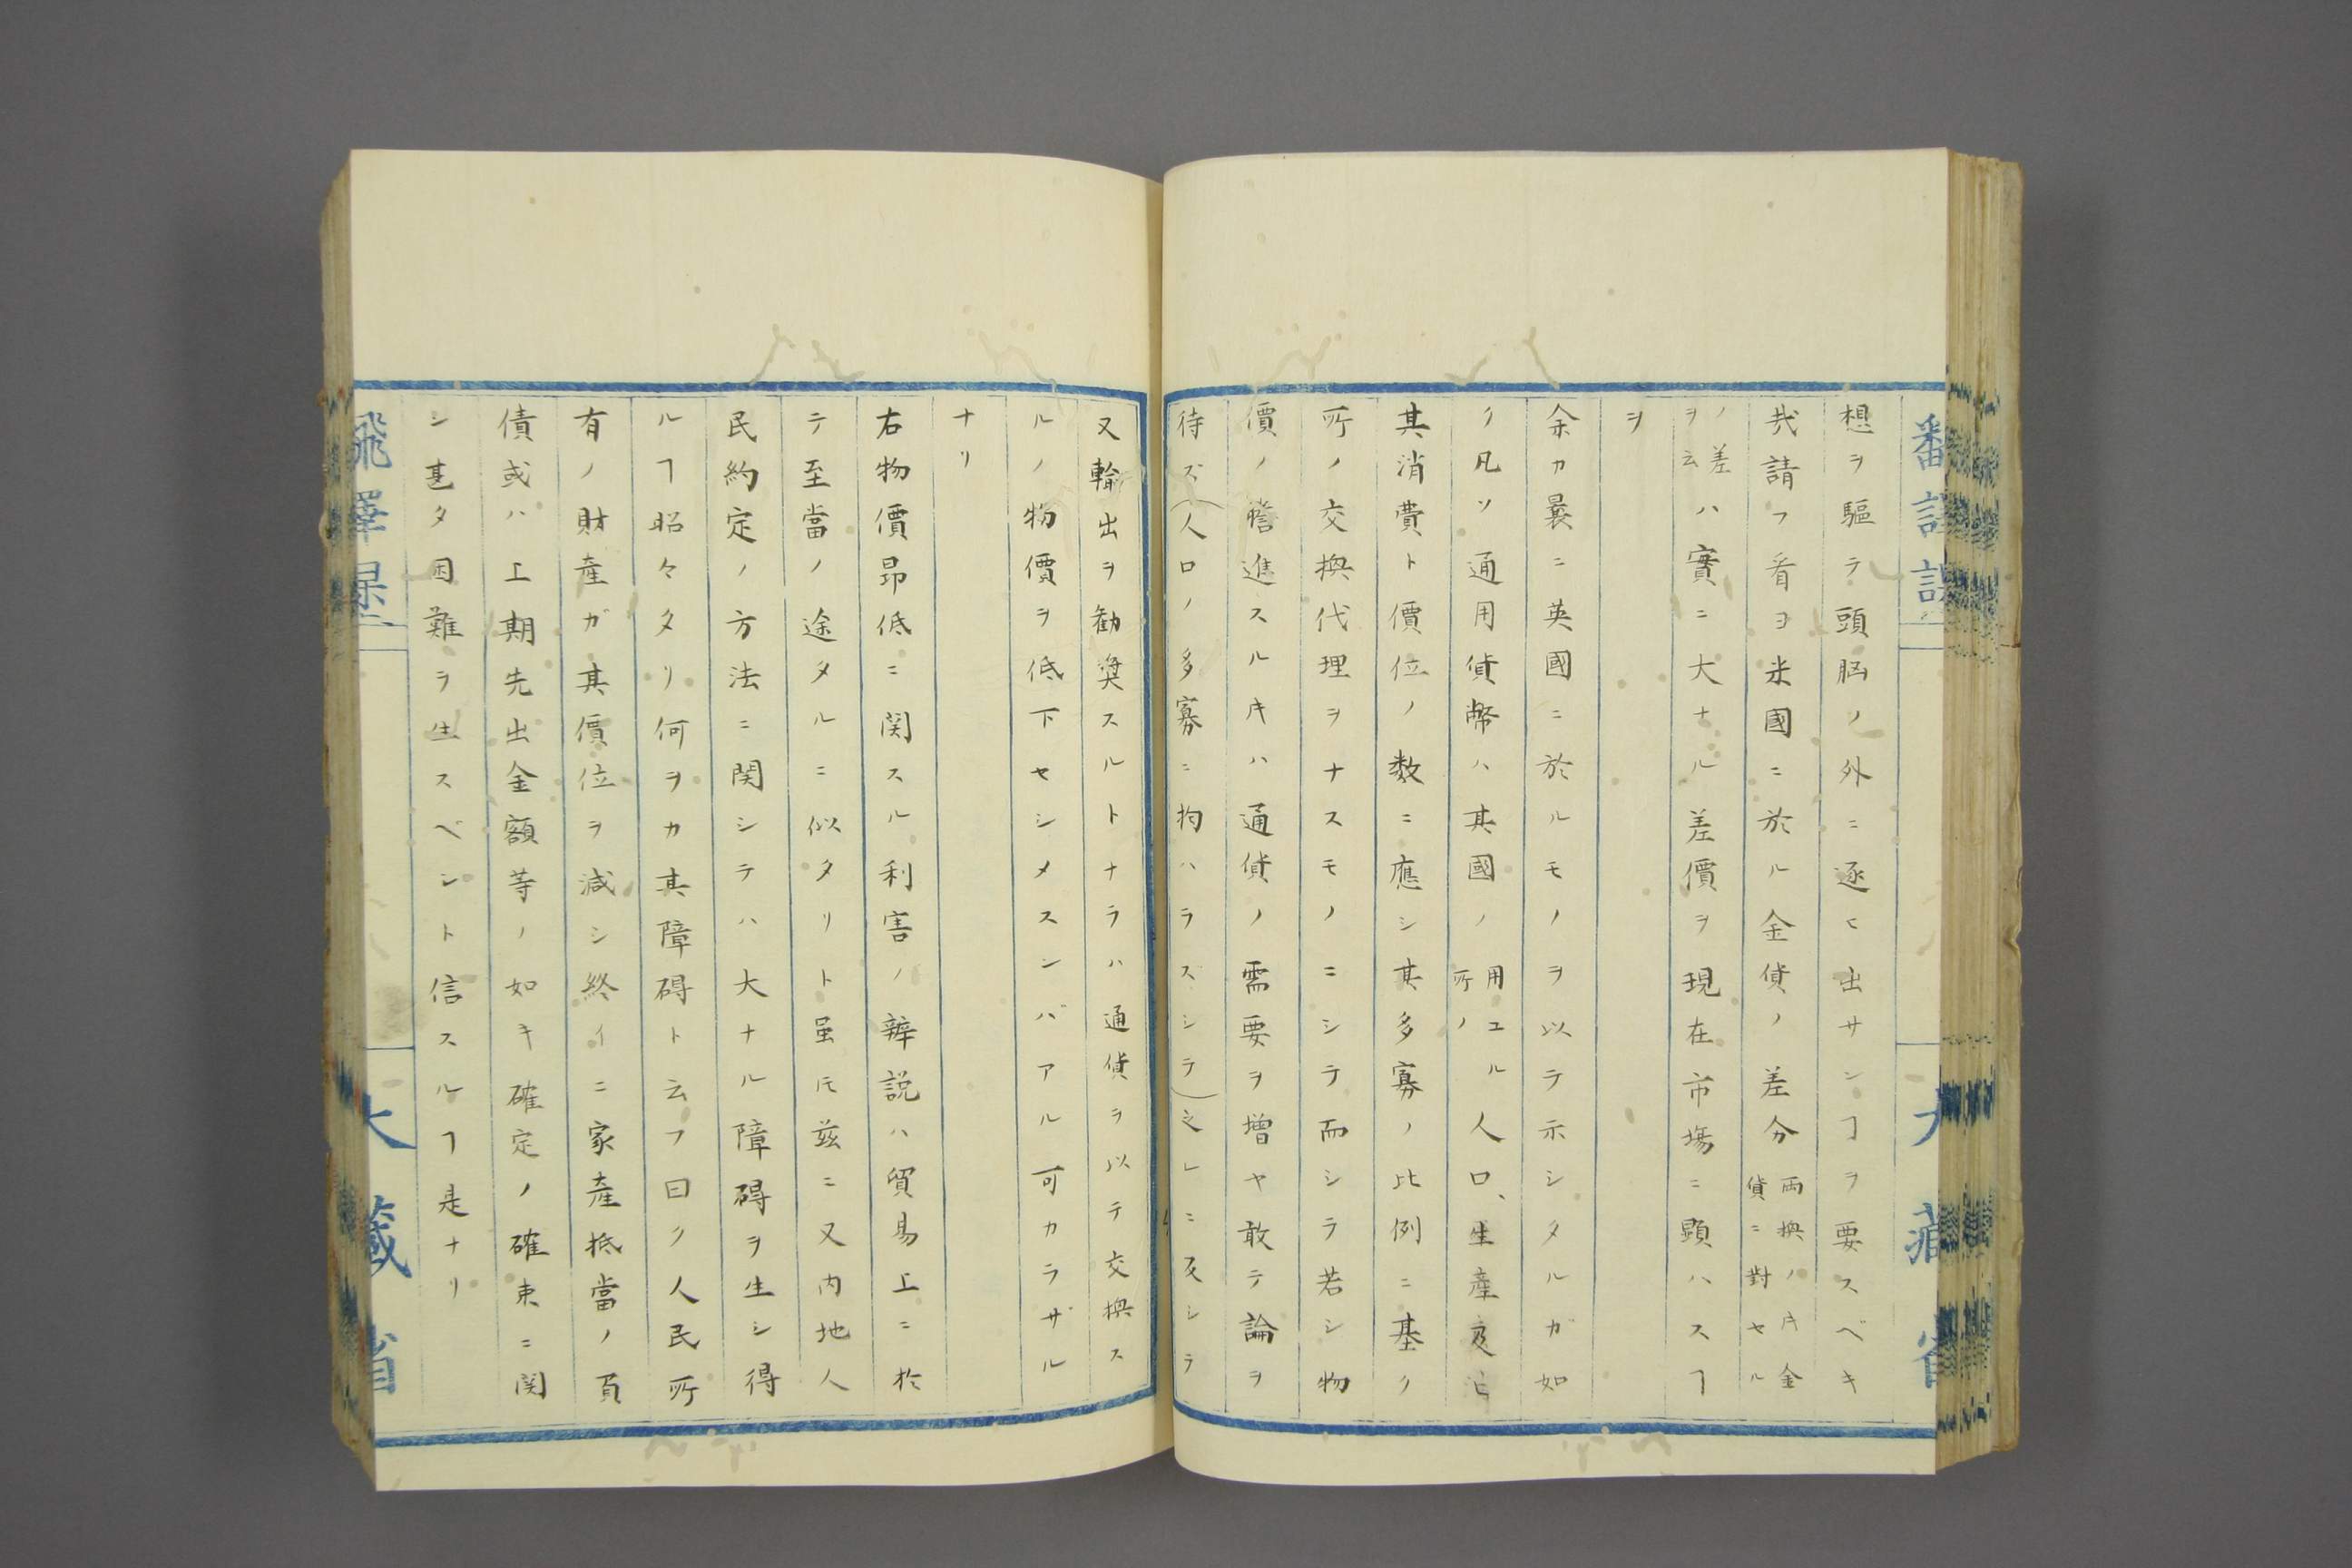 想ヲ驅テ頭脳ノ外ニ逐ヒ出サンヿヲ要スベキ
哉請フ看ヨ米國ニ於ル金貨ノ差分両換ノ𪜈金貨ニ對セル
ノ差ヲ云ハ實ニ大ナル差價ヲ現在市塲ニ顕ハスヿ
ヲ
余カ曩ニ英國ニ於ルモノヲ以テ示シタルガ如
ク凡ソ通用貨幣ハ其國ノ用ユル所ノ人口、生産及ヒ
其消費ト價位ノ数ニ應シ其多寡ノ比例ニ基ク
所ノ交換代理ヲナスモノニシテ而シテ若シ物
價ノ騰進スルキハ通貨ノ需要ヲ増ヤ敢テ論ヲ
待ズ(人口ノ多寡ニ拘ハラズシテ)之レニ反シテ
又輸出ヲ勧奨スルトナラハ通貨ヲ以テ交換ス
ルノ物價ヲ低下セシメスンバアル可カラザル
ナリ
右物價昂低ニ関スル利害ノ辨説ハ貿易上ニ於
テ至當ノ途タルニ似タリト虽𪜈茲ニ又内地人
民約定ノ方法ニ関シテハ大ナル障碍ヲ生シ得
ルヿ昭々タリ何ヲカ其障碍ト云フ曰ク人民所
有ノ財産ガ其價位ヲ減シ終イニ家産抵當ノ負
債或ハ上期先出金額等ノ如キ確定ノ確束ニ関
シ甚タ困難ヲ生スベシト信スルヿ是ナリ
大藏省